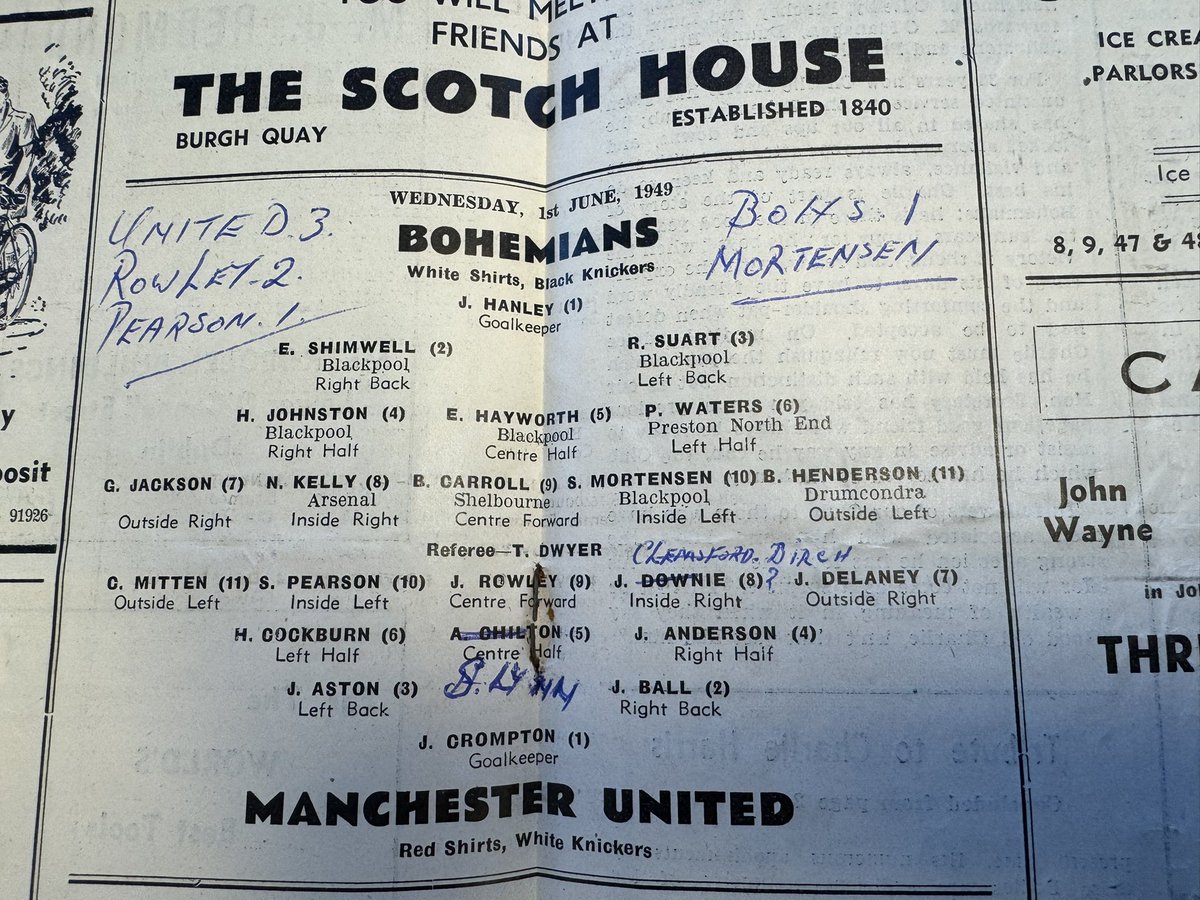 YOU WILL MEET
FRIENDS AT
THE SCOTCH HOUSE
BURGH QUAY
ESTABLISHED 1840
WEDNESDAY, 1st JUNE, 1949
UNITED. 3.
ROWLEY-2.
PEARSON. 1.
BOHEMIANS
White Shirts, Black Knickers
BOHS. 1
MORTENSEN
J. HANLEY (1)
Goalkeeper
E. SHIMWELL (2) R. SUART (3)
Blackpool Blackpool
Right Back Left Back
H. JOHNSTON (4) E. HAYWORTH (5) P. WATERS (6)
Blackpool Blackpool Preston North End
Right Half Centre Half Left Half
G. JACKSON (7) N. KELLY (8) B. CARROLL (9) S. MORTENSEN (10) B. HENDERSON (11)
Arsenal Shelbourne Blackpool Drumcondra
Outside Right Inside Right Centre Forward Inside Left Outside Left
Referee—T. DWYER
BIRCH
C. MITTEN (11) S. PEARSON (10) J. ROWLEY (9) J. DOWNIE (8)? J. DELANEY (7)
Outside Left Inside Left Centre Forward Inside Right Outside Right
H. COCKBURN (6) A. CHILTON (5) J. ANDERSON (4)
Left Half Centre Half Right Half
S. LYNN
J. ASTON (3) J. BALL (2)
Left Back Right Back
J. CROMPTON (1)
Goalkeeper
MANCHESTER UNITED
Red Shirts, White Knickers
91926
ICE
PARLORS
Ice
8, 9, 47 &
John
Wayne
in